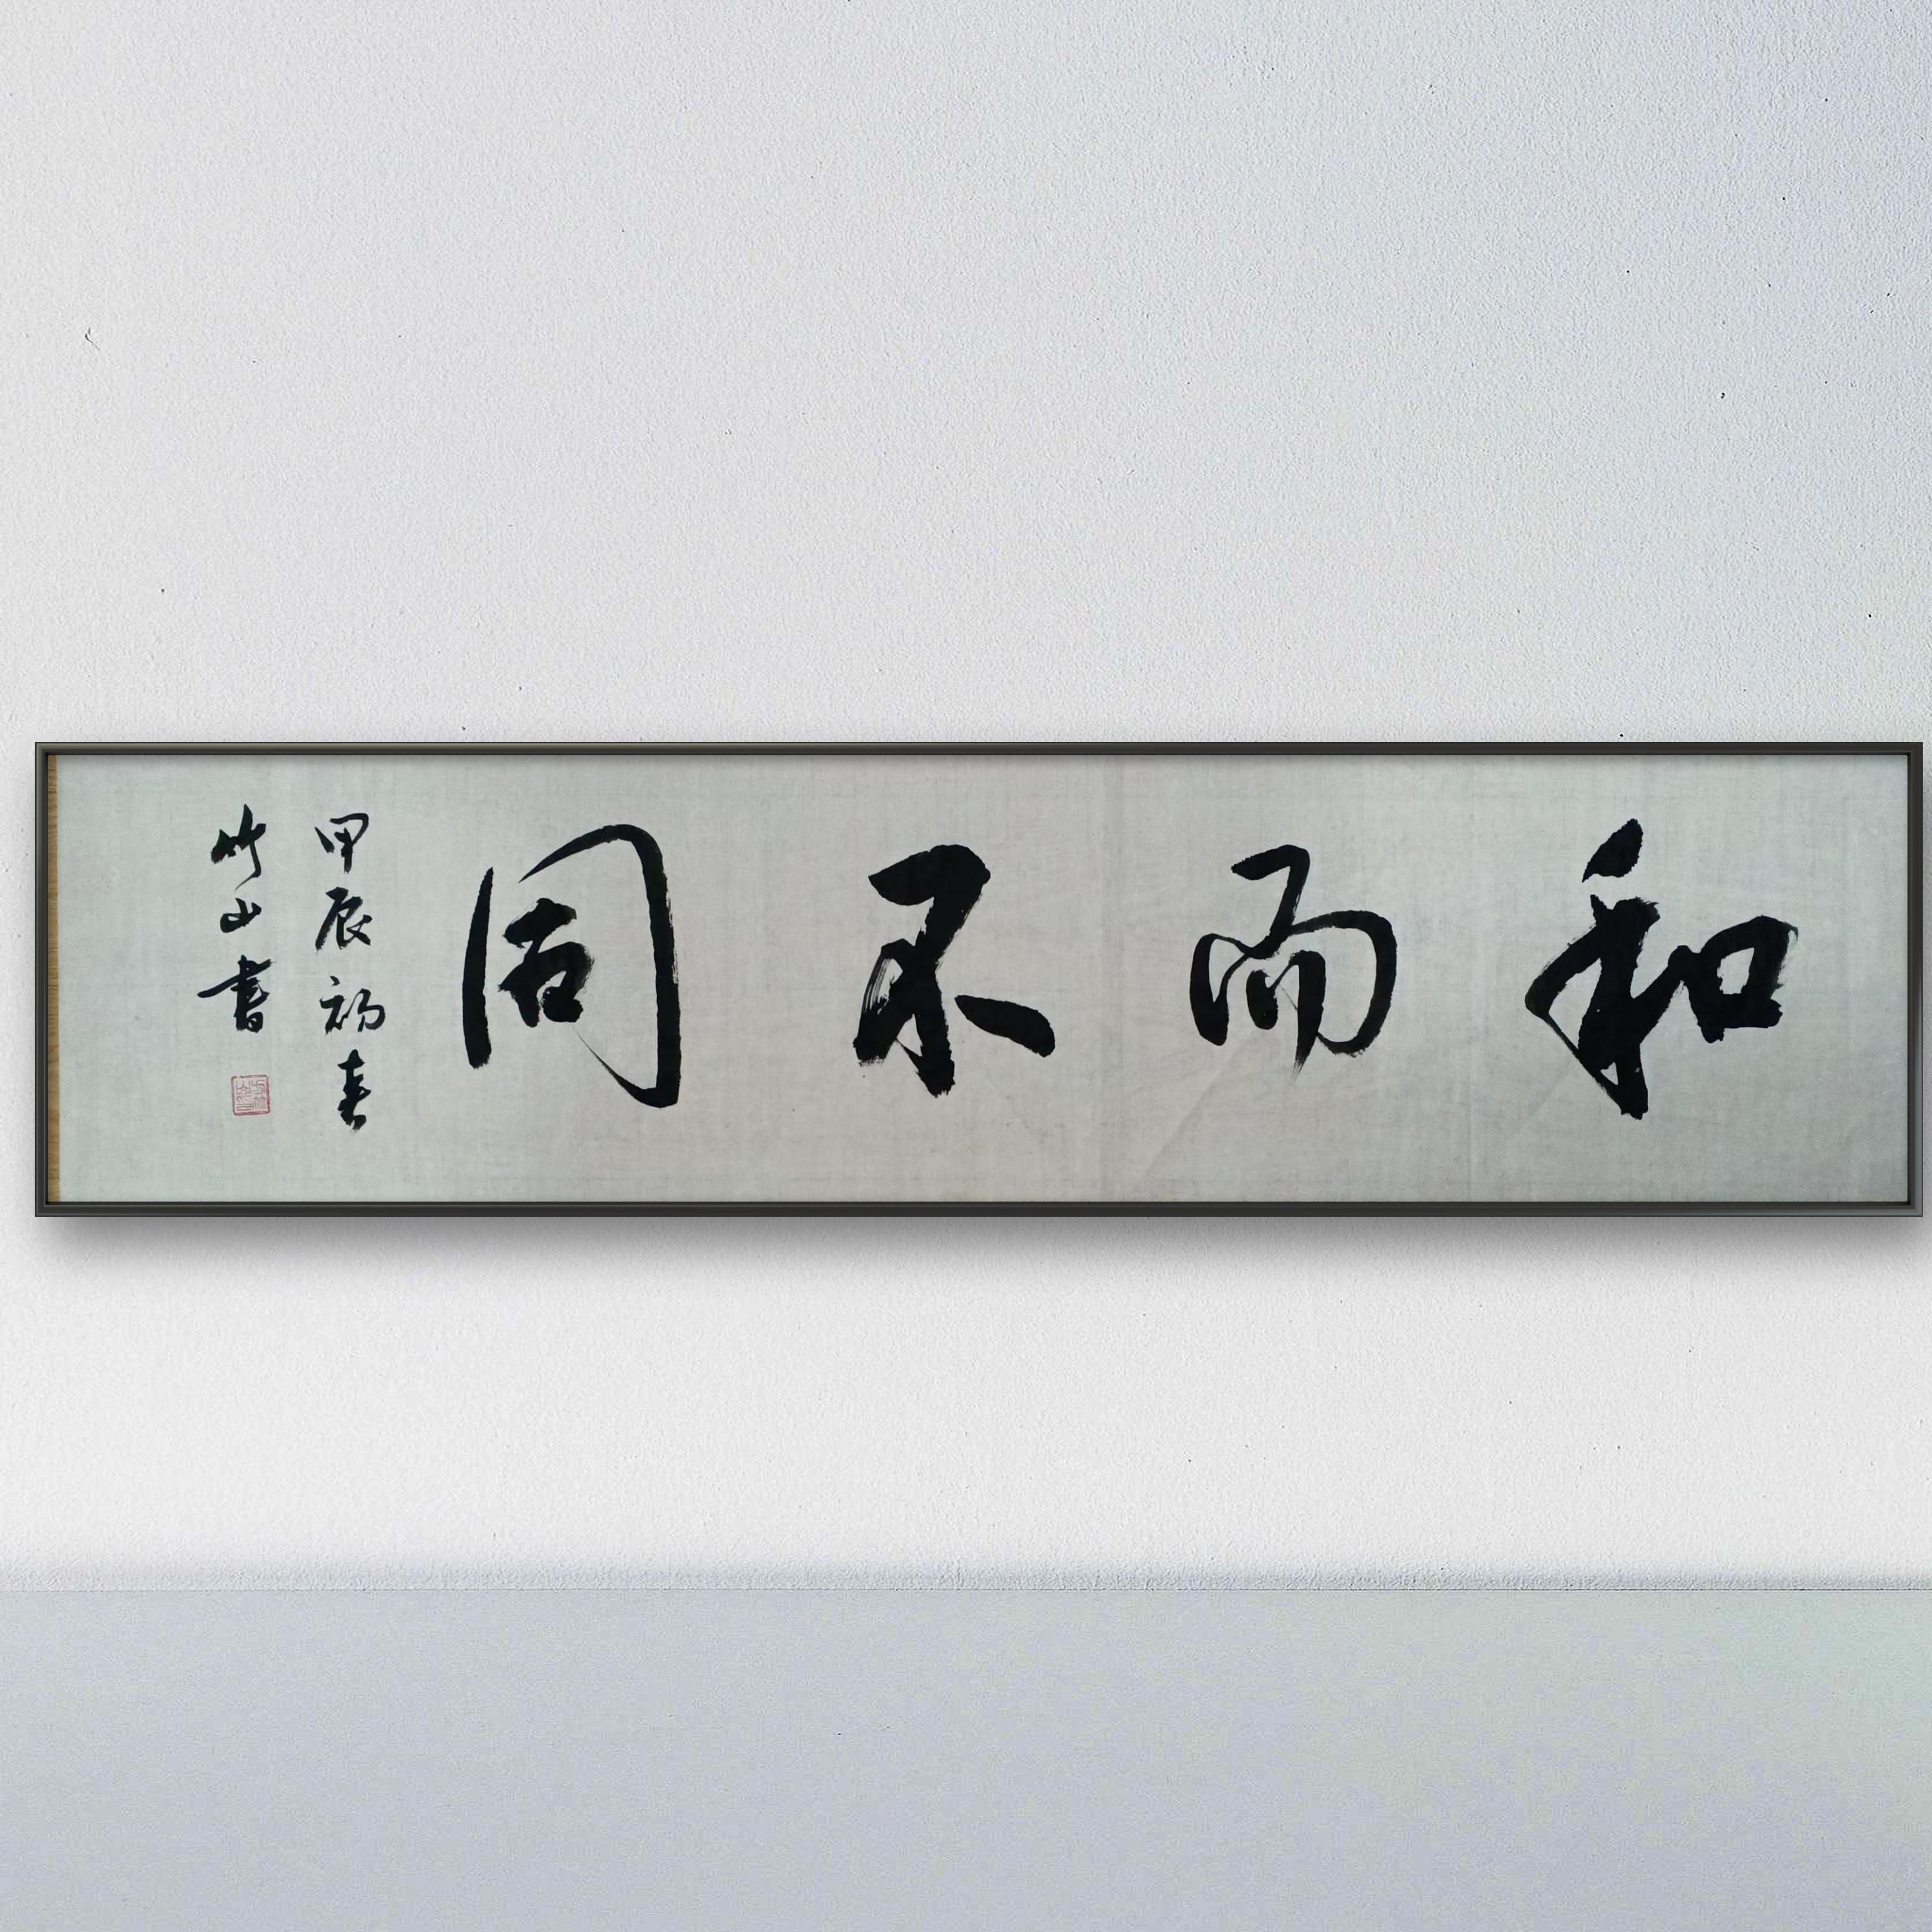 和而不同
甲辰初春
竹山書